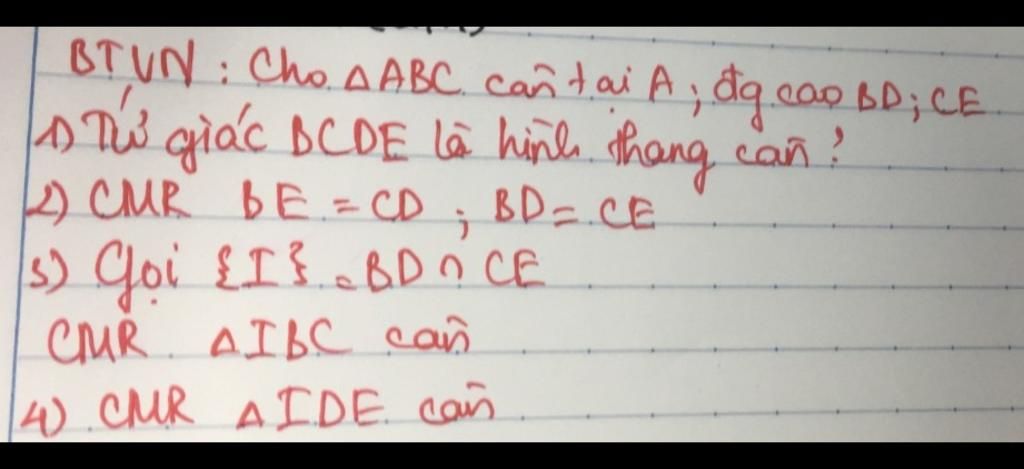 BTVN : Cho △ABC cân tại A ; đg cao BD ; CE
1) Tứ giác BCDE là hình thang cân ?
2) CMR BE = CD ; BD = CE
3) Gọi {I} = BD ∩ CE
CMR △IBC cân
4) CMR △IDE cân